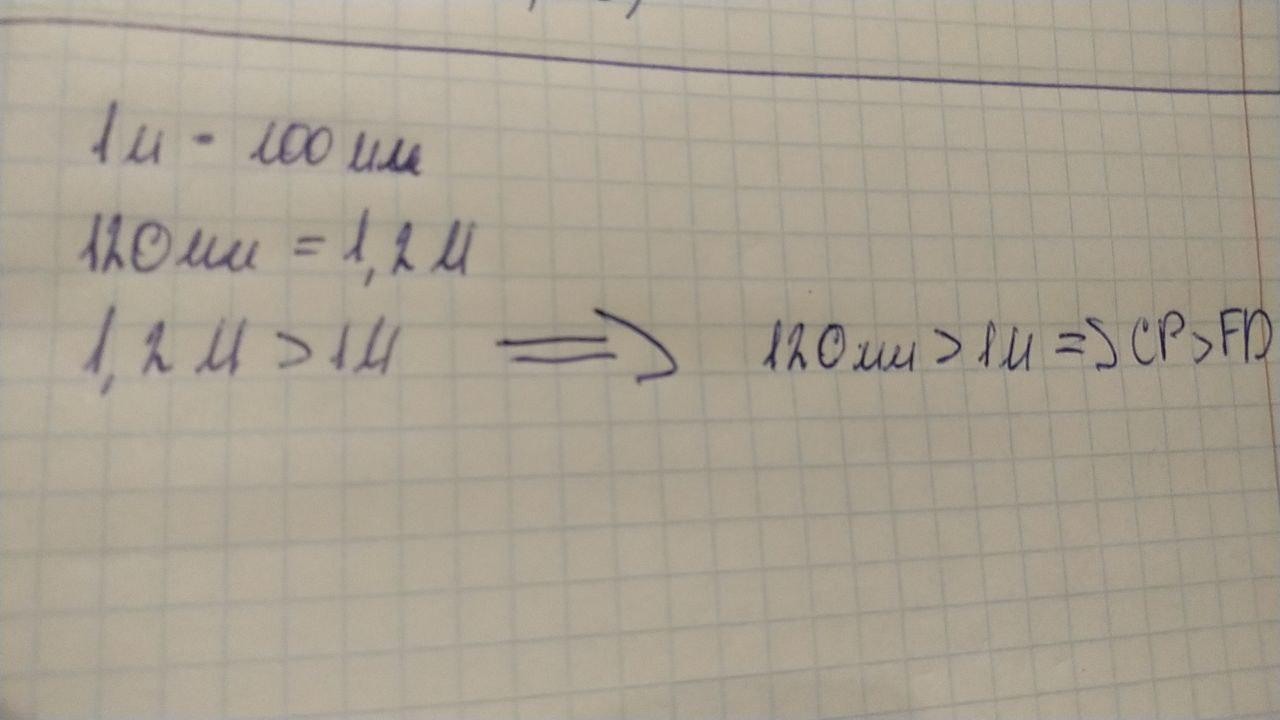 1м - 100 мм
120 мм = 1,2 м
1,2 м > 1м ⇒ 120 мм > 1м => CP > FD